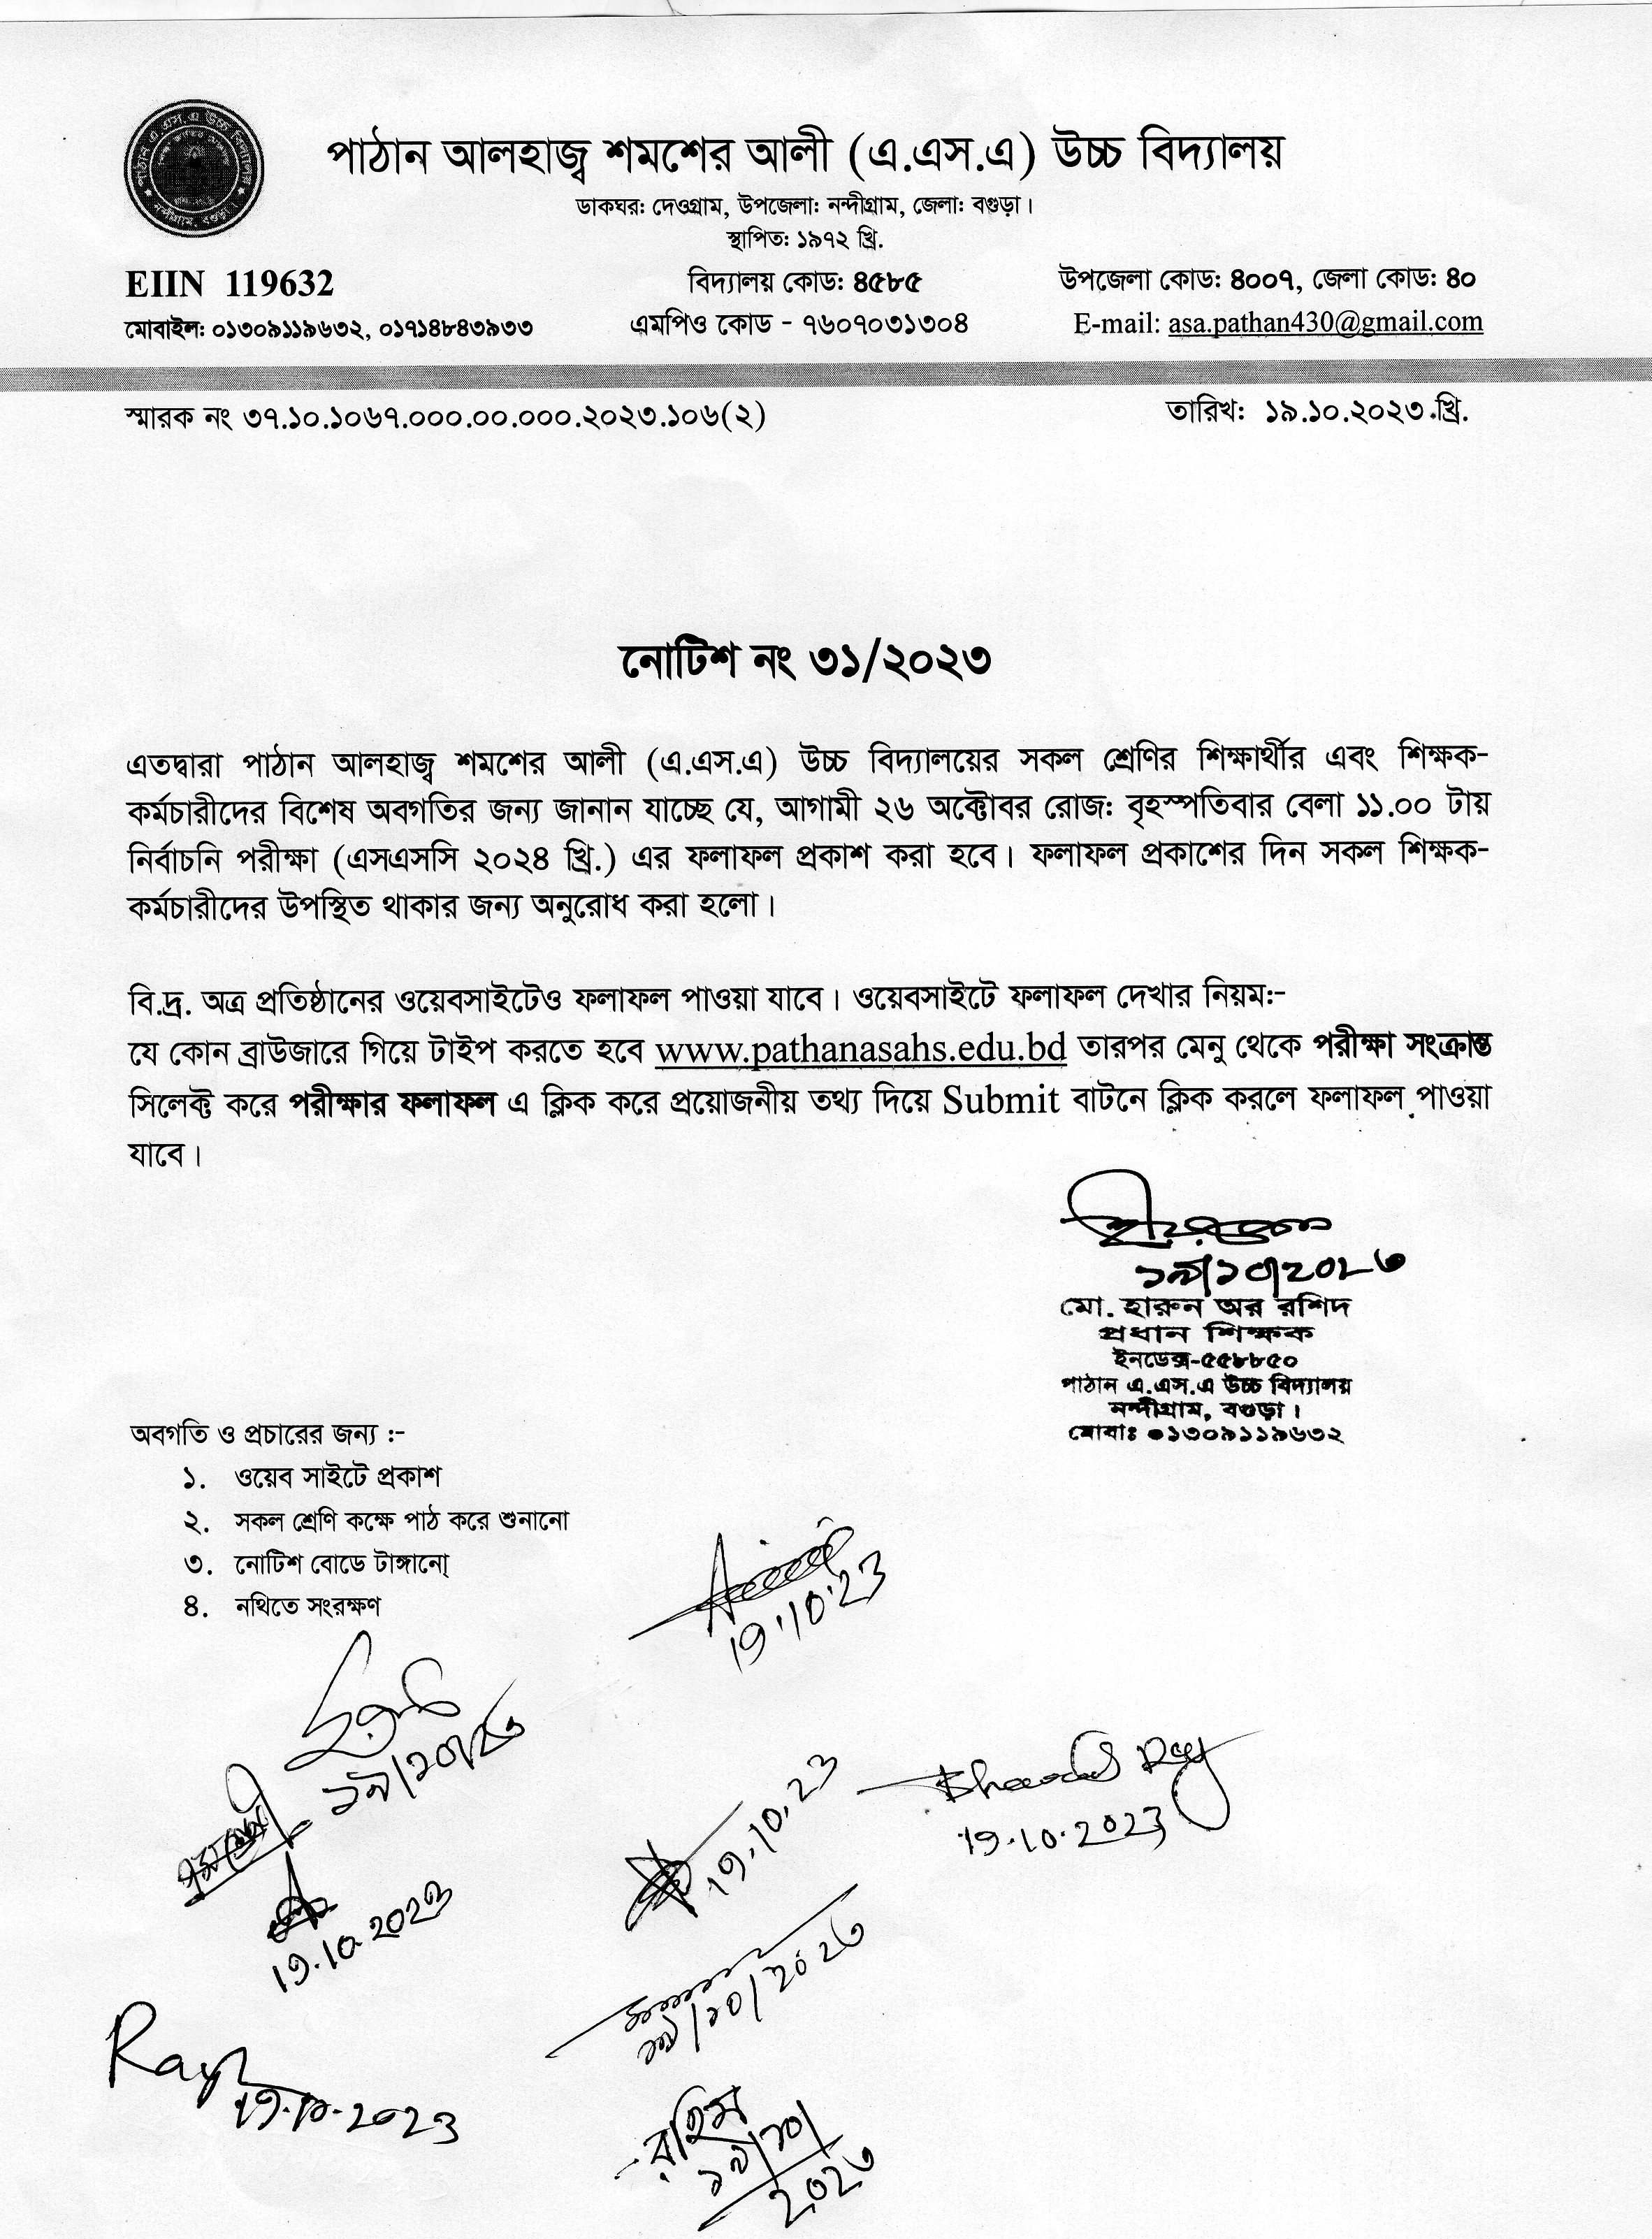 পাঠান আলহাজ্ব শমশের আলী (এ.এস.এ) উচ্চ বিদ্যালয়
ডাকঘর: দেওগ্রাম, উপজেলা: নন্দীগ্রাম, জেলা: বগুড়া।
স্থাপিত: ১৯৭২ খ্রি.
EIIN 119632
বিদ্যালয় কোড: ৪৫৮৫
উপজেলা কোড: ৪০০৭, জেলা কোড: ৪০
মোবাইল: ০১৩০৯১১৯৬৩২, ০১৭১৪৮৪৩৯৩৩
এমপিও কোড - ৭৬০৭০৩১৩০৪
E-mail: asa.pathan430@gmail.com
স্মারক নং ৩৭.১০.১০৬৭.০০০.০০.০০০.২০২৩.১০৬(২)
তারিখ: ১৯.১০.২০২৩.খ্রি.
নোটিশ নং ৩১/২০২৩
এতদ্বারা পাঠান আলহাজ্ব শমশের আলী (এ.এস.এ) উচ্চ বিদ্যালয়ের সকল শ্রেণির শিক্ষার্থীর এবং শিক্ষক-
কর্মচারীদের বিশেষ অবগতির জন্য জানান যাচ্ছে যে, আগামী ২৬ অক্টোবর রোজ: বৃহস্পতিবার বেলা ১১.০০ টায়
নির্বাচনি পরীক্ষা (এসএসসি ২০২৪ খ্রি.) এর ফলাফল প্রকাশ করা হবে। ফলাফল প্রকাশের দিন সকল শিক্ষক-
কর্মচারীদের উপস্থিত থাকার জন্য অনুরোধ করা হলো।
বি.দ্র. অত্র প্রতিষ্ঠানের ওয়েবসাইটেও ফলাফল পাওয়া যাবে। ওয়েবসাইটে ফলাফল দেখার নিয়ম:-
যে কোন ব্রাউজারে গিয়ে টাইপ করতে হবে www.pathanasahs.edu.bd তারপর মেনু থেকে পরীক্ষা সংক্রান্ত
সিলেক্ট করে পরীক্ষার ফলাফল এ ক্লিক করে প্রয়োজনীয় তথ্য দিয়ে Submit বাটনে ক্লিক করলে ফলাফল পাওয়া
যাবে।
১৯/১০/২০২৩
মো. হারুন অর রশিদ
প্রধান শিক্ষক
ইনডেক্স-৫৫৮৮৫০
পাঠান এ.এস.এ উচ্চ বিদ্যালয়
নন্দীগ্রাম, বগুড়া।
মোবাঃ ০১৩০৯১১৯৬৩২
অবগতি ও প্রচারের জন্য :-
১. ওয়েব সাইটে প্রকাশ
২. সকল শ্রেণি কক্ষে পাঠ করে শুনানো
৩. নোটিশ বোডে টাঙ্গানো
৪. নথিতে সংরক্ষণ
19.10.23
১৯/১০/২৩
19.10.23
19.10.2023
19.10.2023
১৯/১০/২০২৩
19.10.2023
রহিম
১৯/১০/
২০২৩